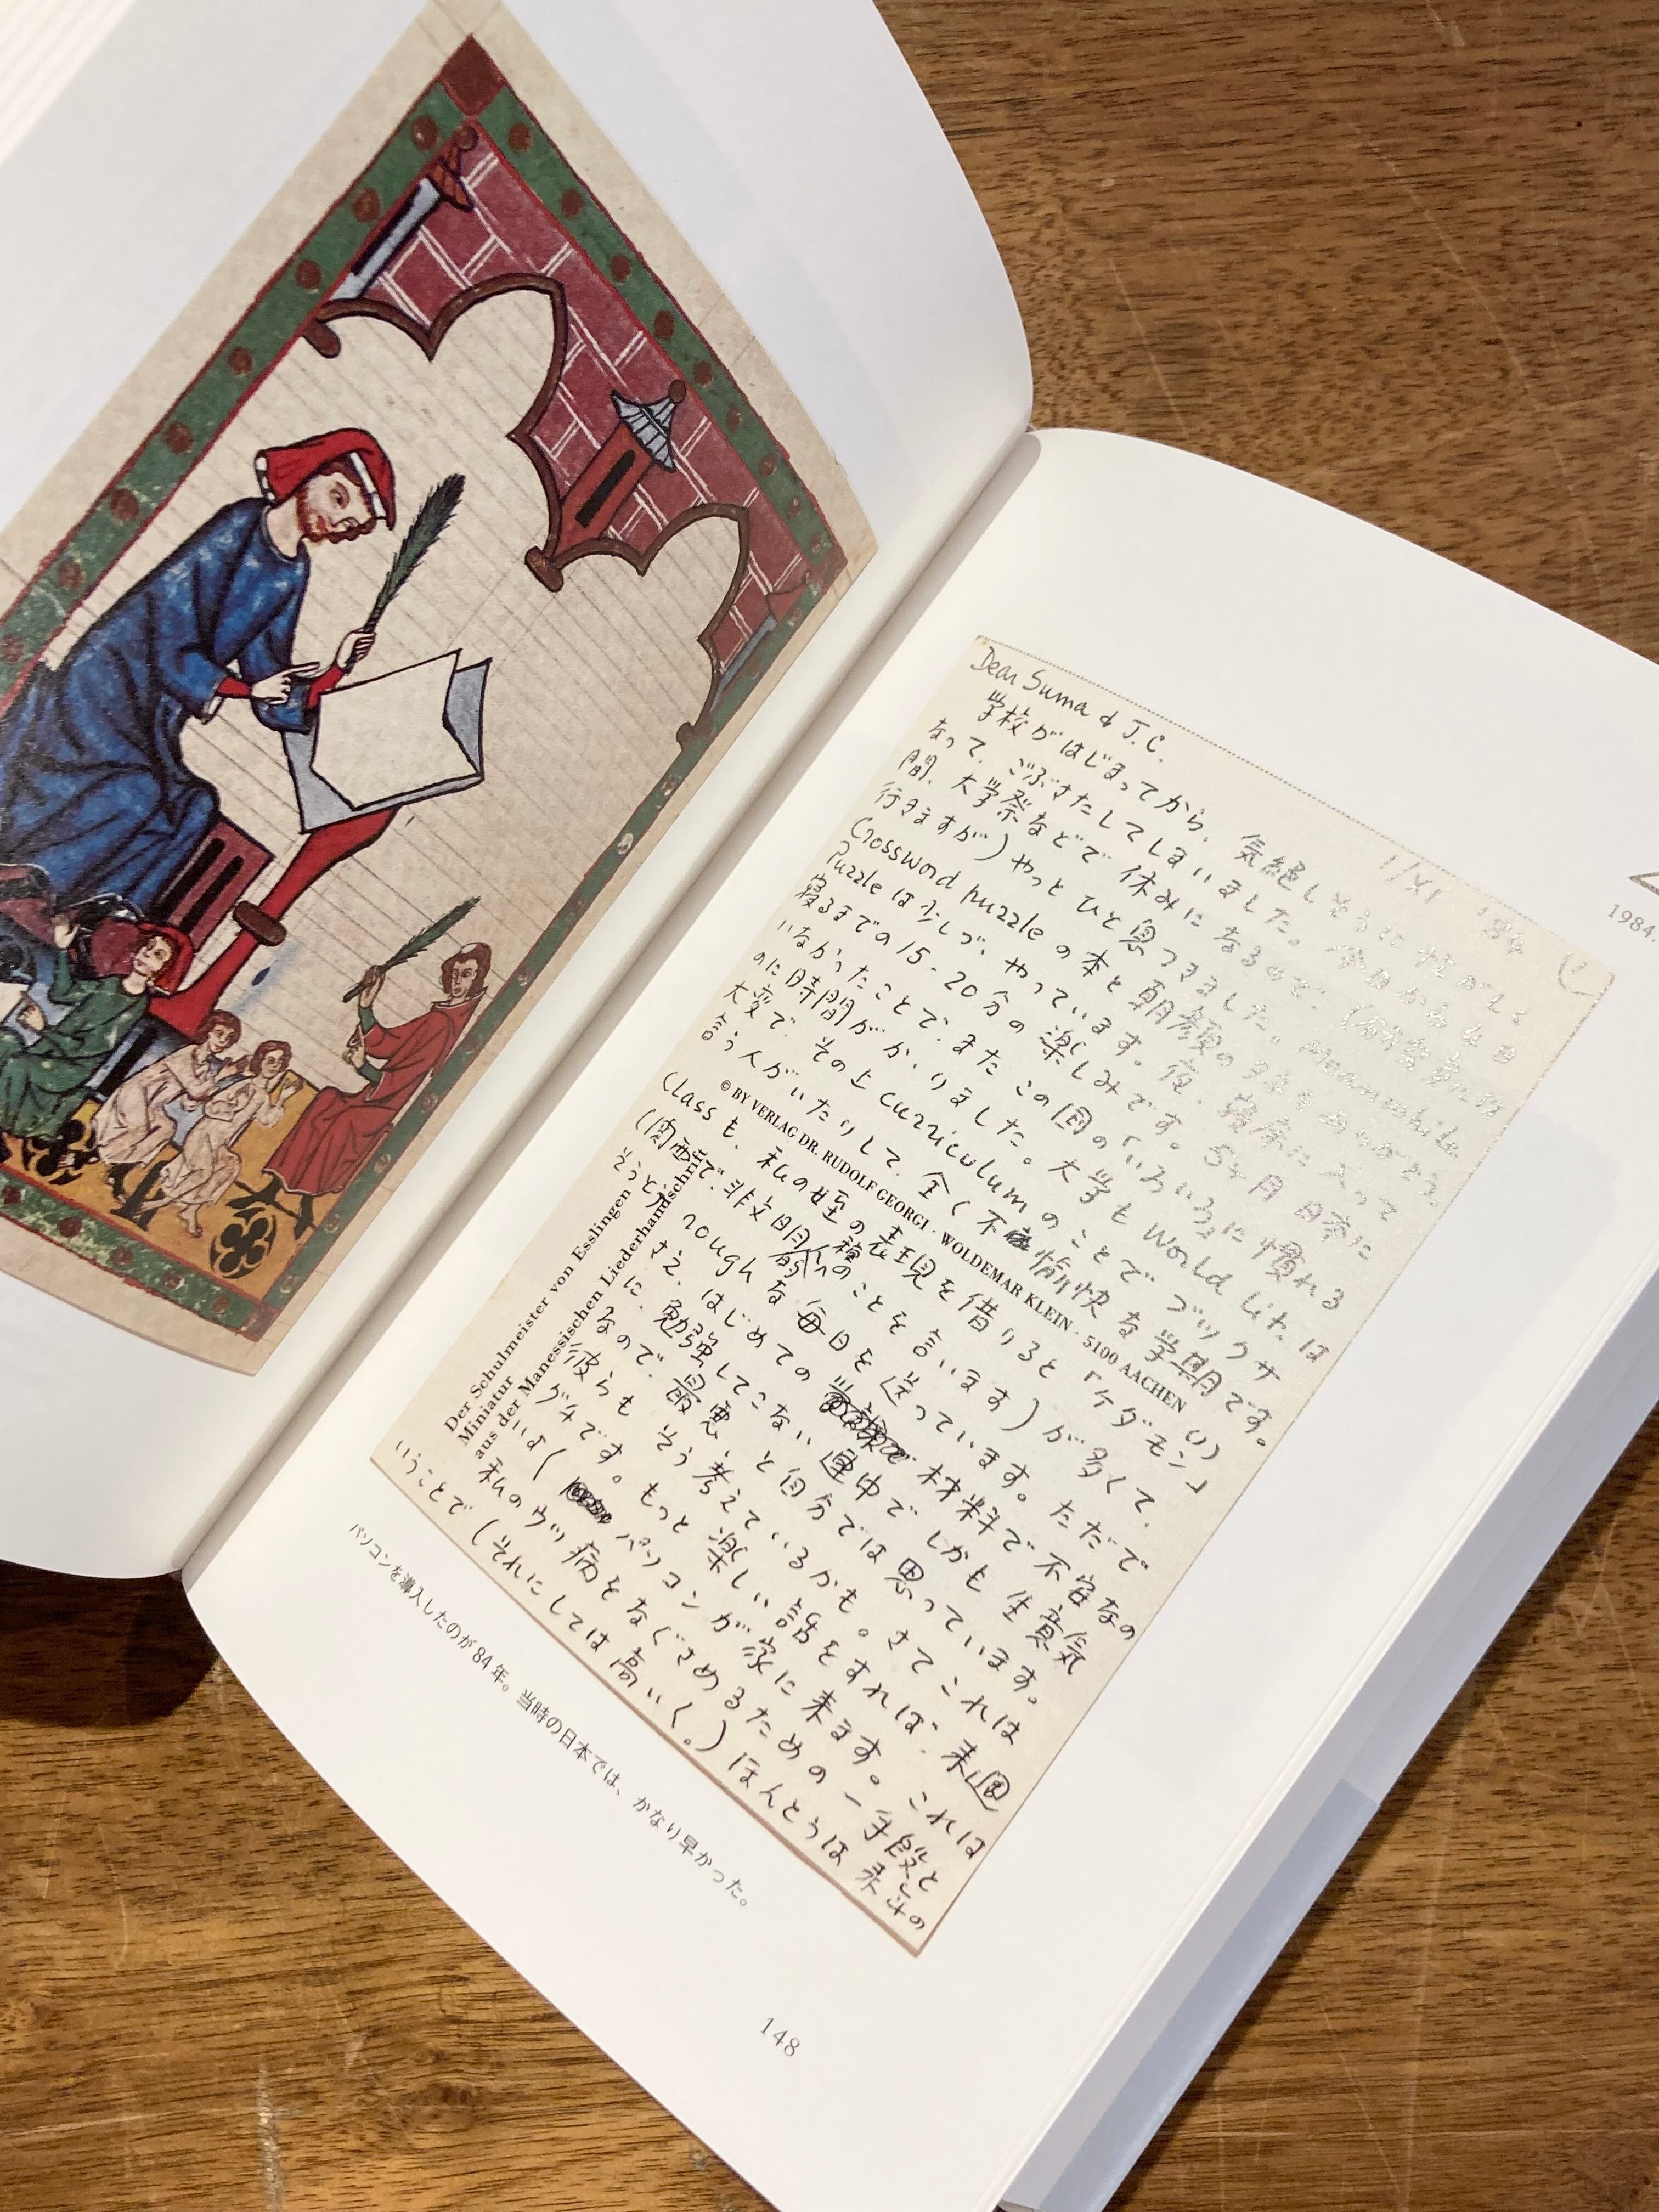 Dear Suma & J.C.
1/XI '84
1
学校がはじまってから、気絶しそうに忙がしく
なって、ごぶさたしてしまいました。今日から4日
間、大学祭などで休みになるので、
行きますが)やっとひと息つきました。Meanwhile,
Crossword puzzleの本と朝顔のタネをありがとう。
Puzzleは少しづつやっています。夜、寝床に入って
寝るまでの15-20分の楽しみです。5ヶ月日本に
いなかったことで、またこの国の「いろいろ」に慣れる
のに時間がかかりました。大学もWorld Lit.は
大変で、その上curriculumのことでゴツクサ
言う人がいたりして、全く不愉快な学期です。
Classも、私の姪の表現を借りると「ケダモン」
(関西で、非文明的のことを言います)が多くて、
ぞうとう roughな毎日を送っています。ただで
さえ、はじめての材料で不安なの
に、勉強してこない連中でしかも生意気
なので、最悪、と自分では思っています。
彼らもそう考えているかも。さてこれは
グチです。もっと楽しい話をすれば、来週
パソコンが家に来ます。これは
私のウツ病をなぐさめるための一手段と
いうことで(それにしては高いく。)ほんとうは
© BY VERLAG DR. RUDOLF GEORGI · WOLDEMAR KLEIN · 5100 AACHEN
Der Schulmeister von Esslingen
Miniatur
aus der Manessischen Liederhandschrift
1984.
パソコンを導入したのが84年。当時の日本では、かなり早かった。
148